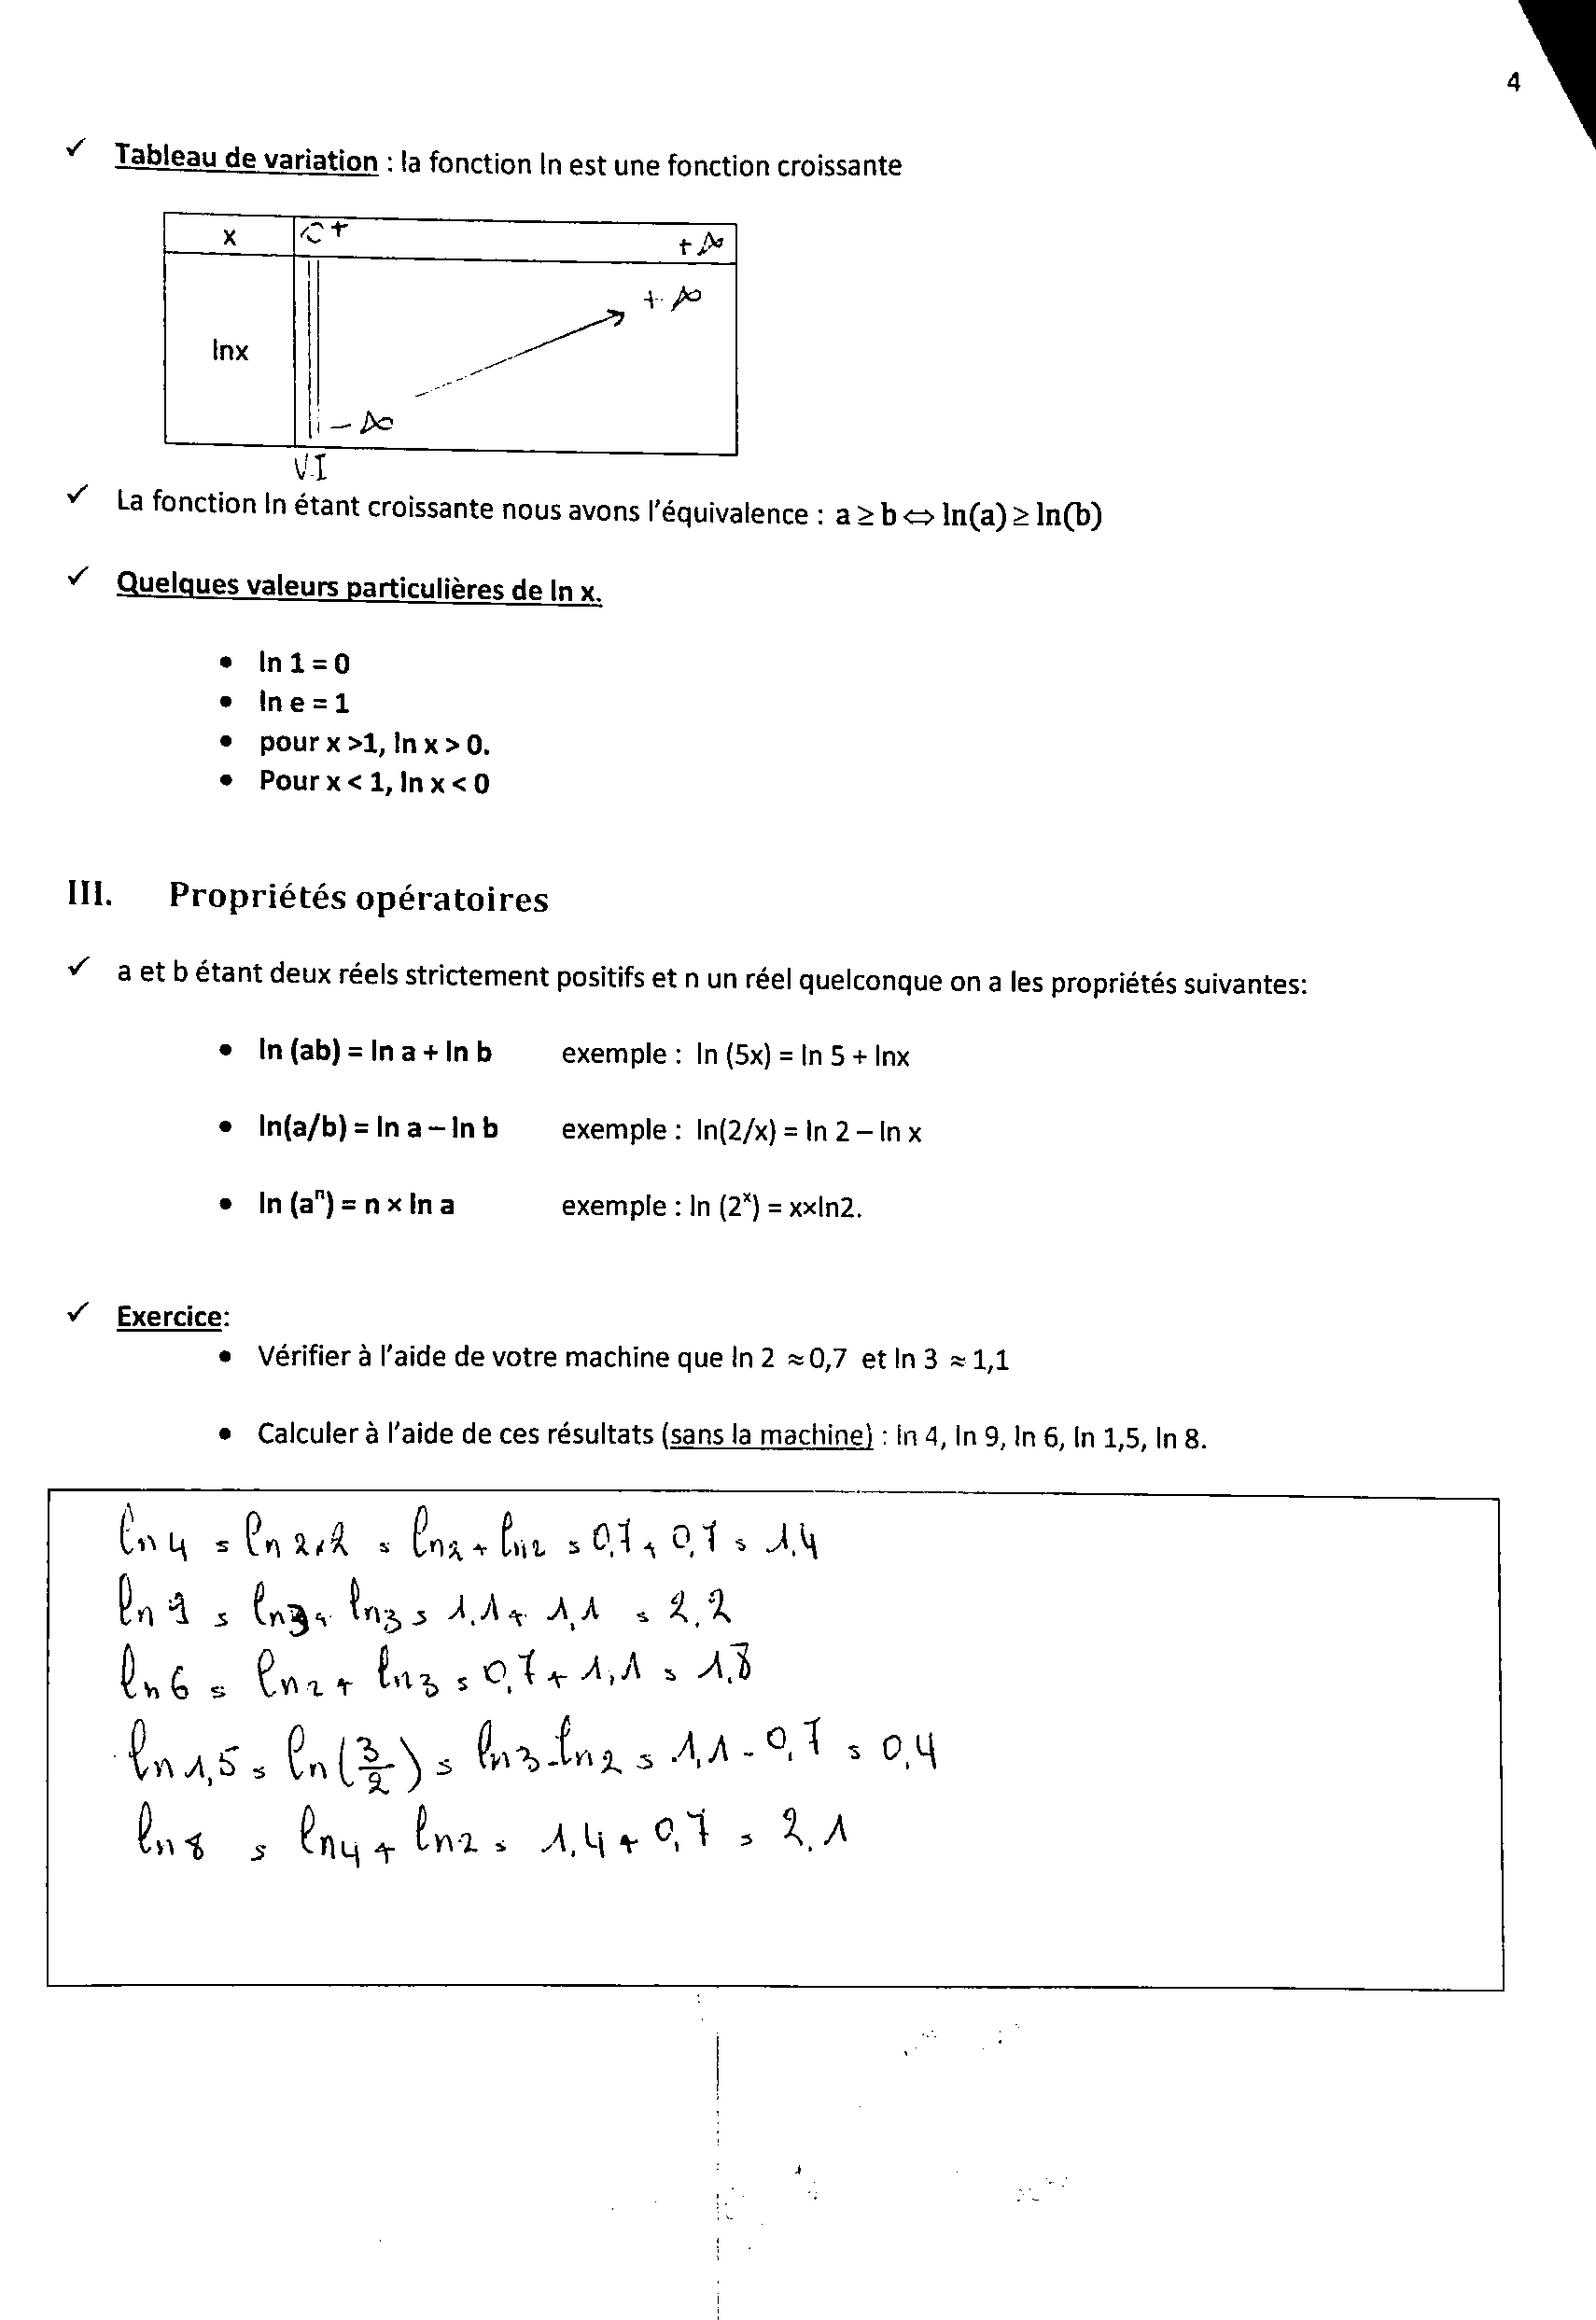 4
✓ Tableau de variation : la fonction ln est une fonction croissante
x 0+ +∞
+∞
lnx
-∞
V.I
✓ La fonction ln étant croissante nous avons l'équivalence : a ≥ b ⇔ ln(a) ≥ ln(b)
✓ Quelques valeurs particulières de ln x.
• ln 1 = 0
• ln e = 1
• pour x >1, ln x > 0.
• Pour x < 1, ln x < 0
III. Propriétés opératoires
✓ a et b étant deux réels strictement positifs et n un réel quelconque on a les propriétés suivantes:
• ln (ab) = ln a + ln b exemple : ln (5x) = ln 5 + lnx
• ln(a/b) = ln a – ln b exemple : ln(2/x) = ln 2 – ln x
• ln (aⁿ) = n × ln a exemple : ln (2ˣ) = x×ln2.
✓ Exercice:
• Vérifier à l'aide de votre machine que ln 2 ≈ 0,7 et ln 3 ≈ 1,1
• Calculer à l'aide de ces résultats (sans la machine) : ln 4, ln 9, ln 6, ln 1,5, ln 8.
ln 4 = ln 2×2 = ln2 + ln2 = 0,7 + 0,7 = 1,4
ln 9 = ln3 + ln3 = 1,1 + 1,1 = 2,2
ln 6 = ln2 + ln3 = 0,7 + 1,1 = 1,8
ln 1,5 = ln(3/2) = ln3 - ln2 = 1,1 - 0,7 = 0,4
ln 8 = ln4 + ln2 = 1,4 + 0,7 = 2,1